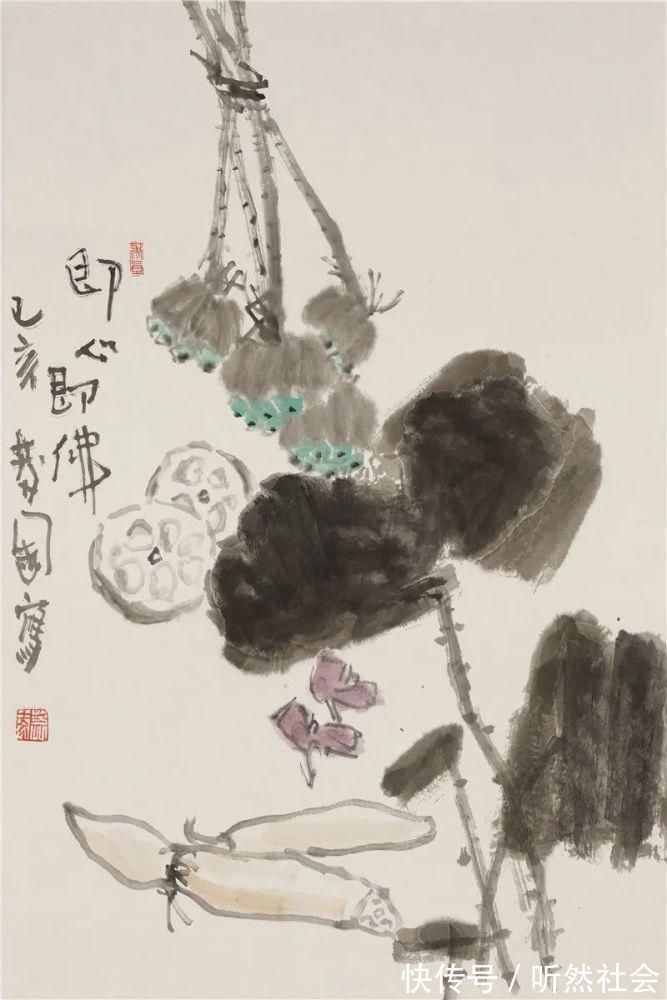 即心即佛
己亥 寫
快传号 / 听然社会